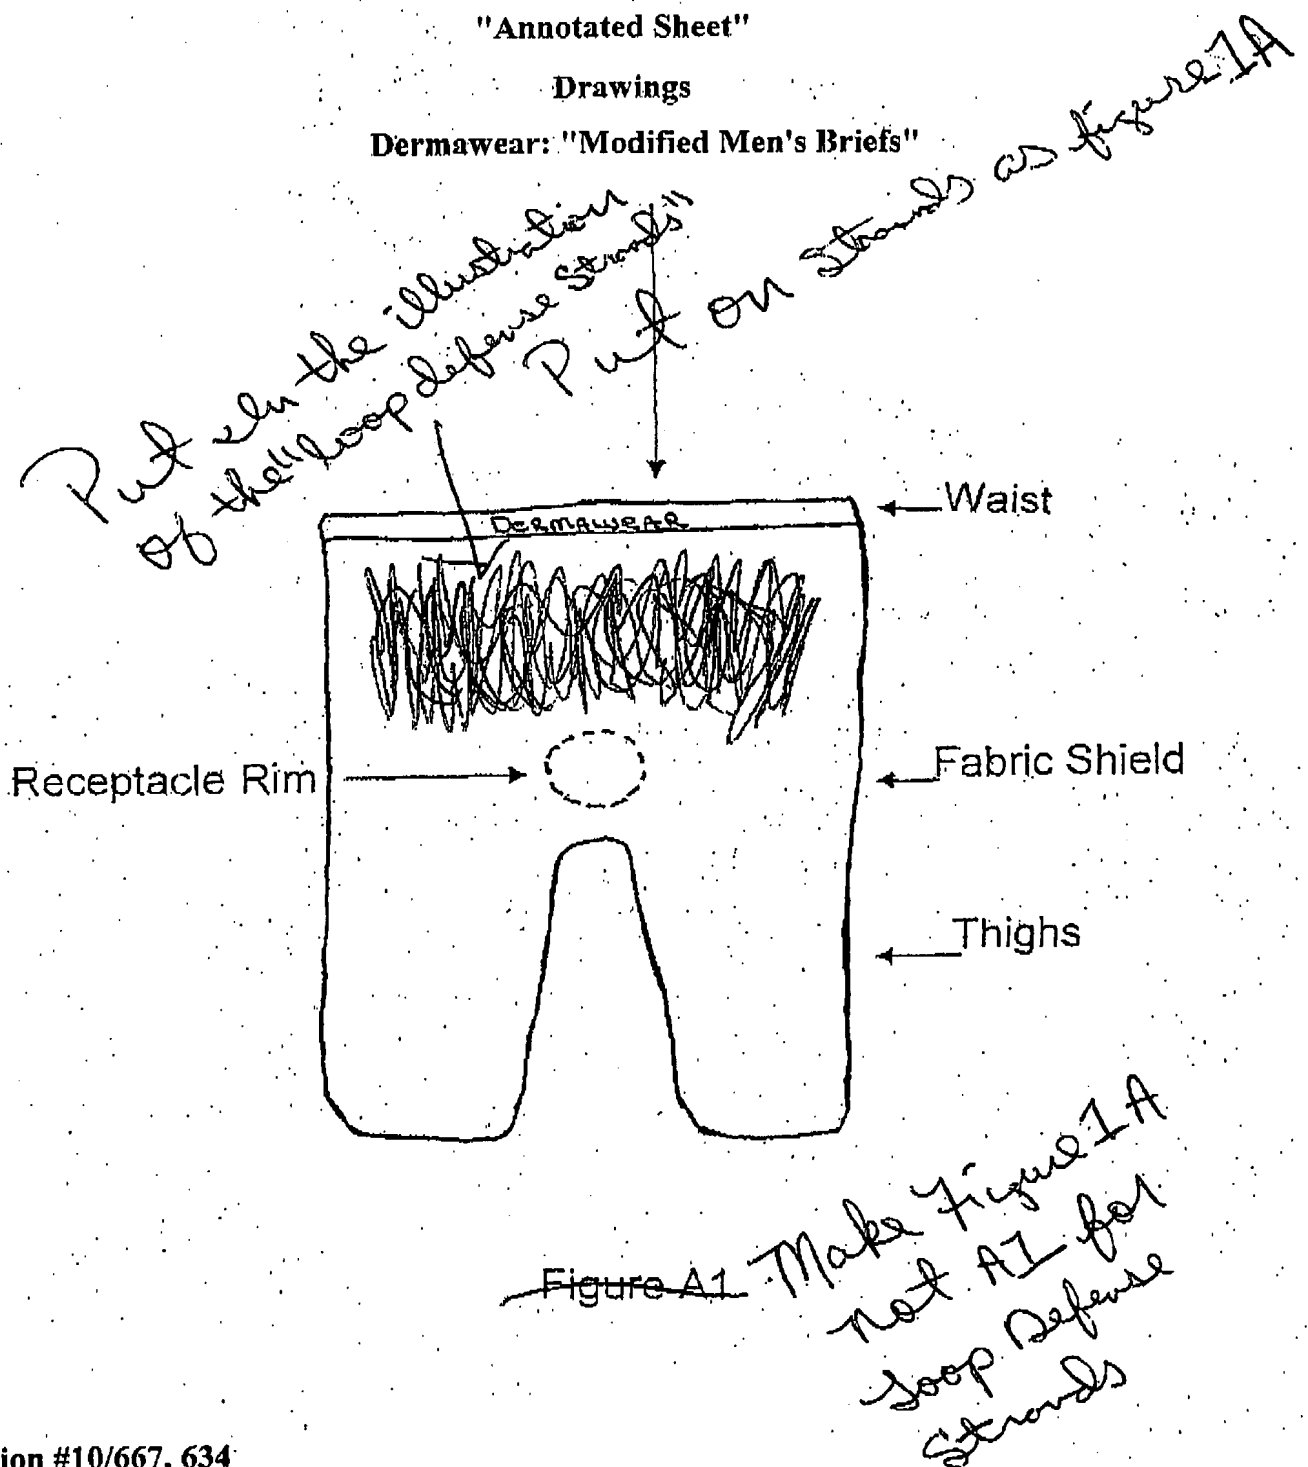 "Annotated Sheet"
Drawings
Dermawear: "Modified Men's Briefs"
Put in the illustration
of the "loop defense Strands"
Put on Strands as figure 1A
Waist
DERMAWEAR
Receptacle Rim
Fabric Shield
Thighs
Figure A1
Make Figure 1A
not A1 for
Loop Defense
Strands
ion #10/667, 634